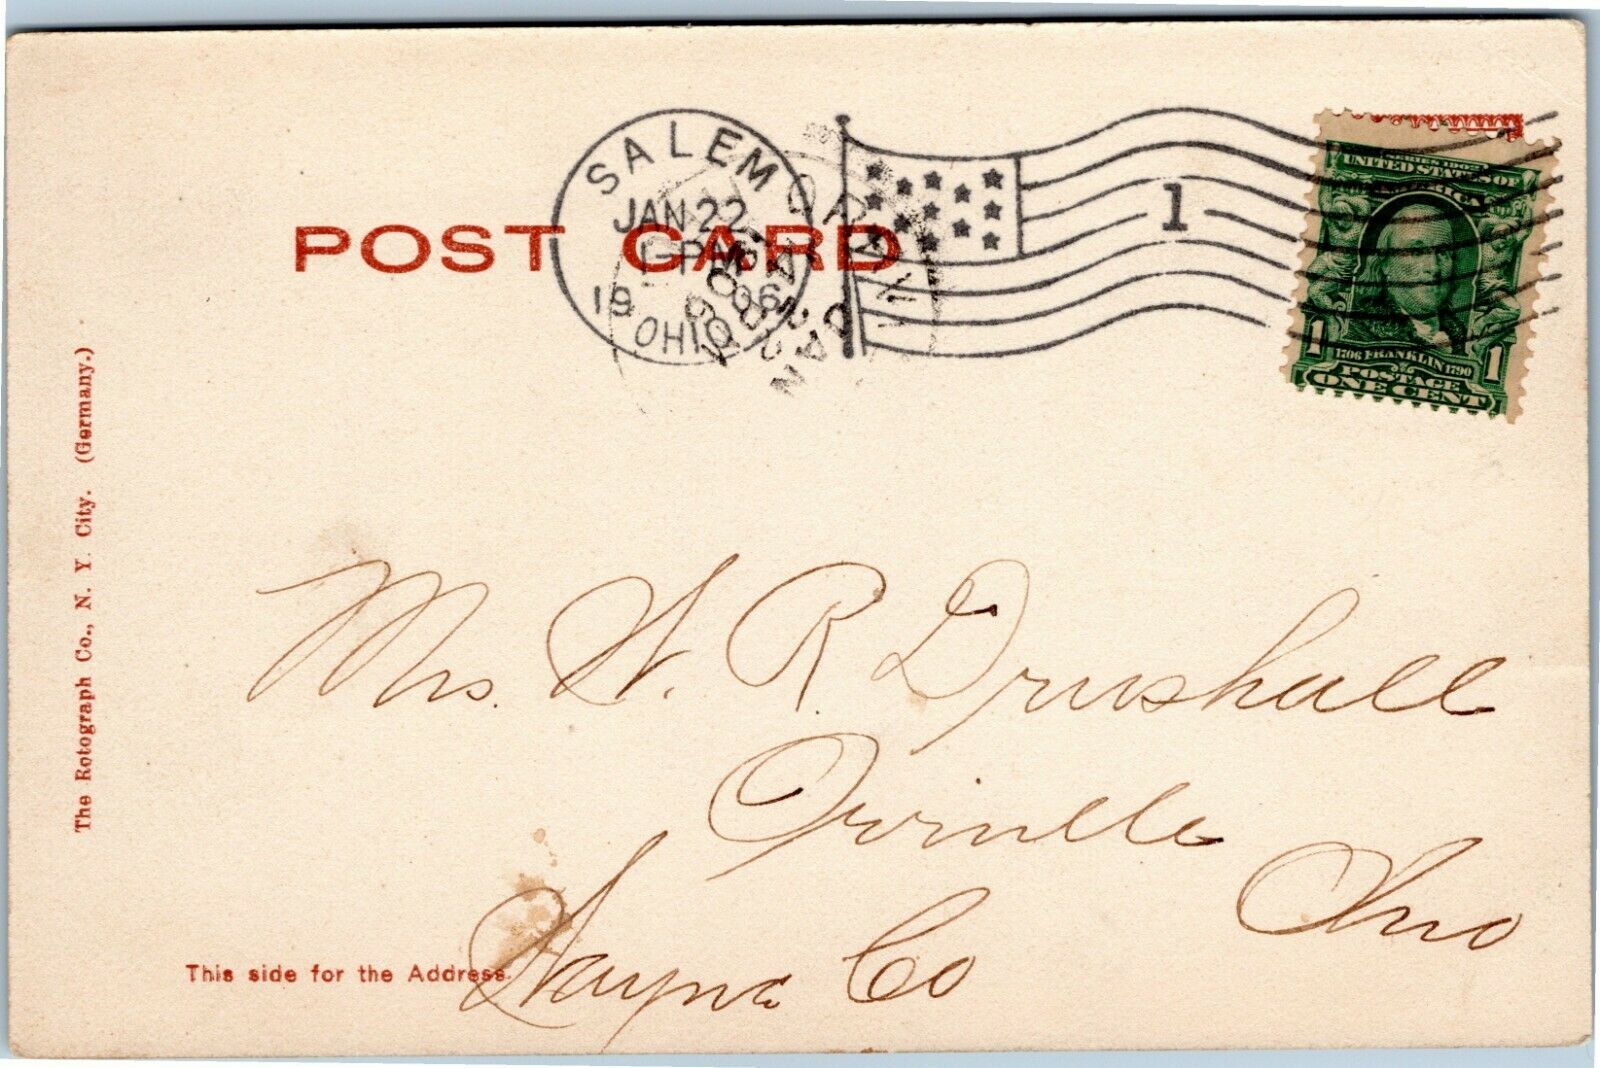 POST CARD
SALEM
JAN 22
1-PM
19 06
OHIO
1
SERIES 1902
UNITED STATES OF AMERICA
1 1706 FRANKLIN 1790 1
POSTAGE
ONE CENT
The Rotograph Co., N. Y. City. (Germany.)
Mrs. W. R. Drushall
Orville
Ohio
Wayne Co
This side for the Address.